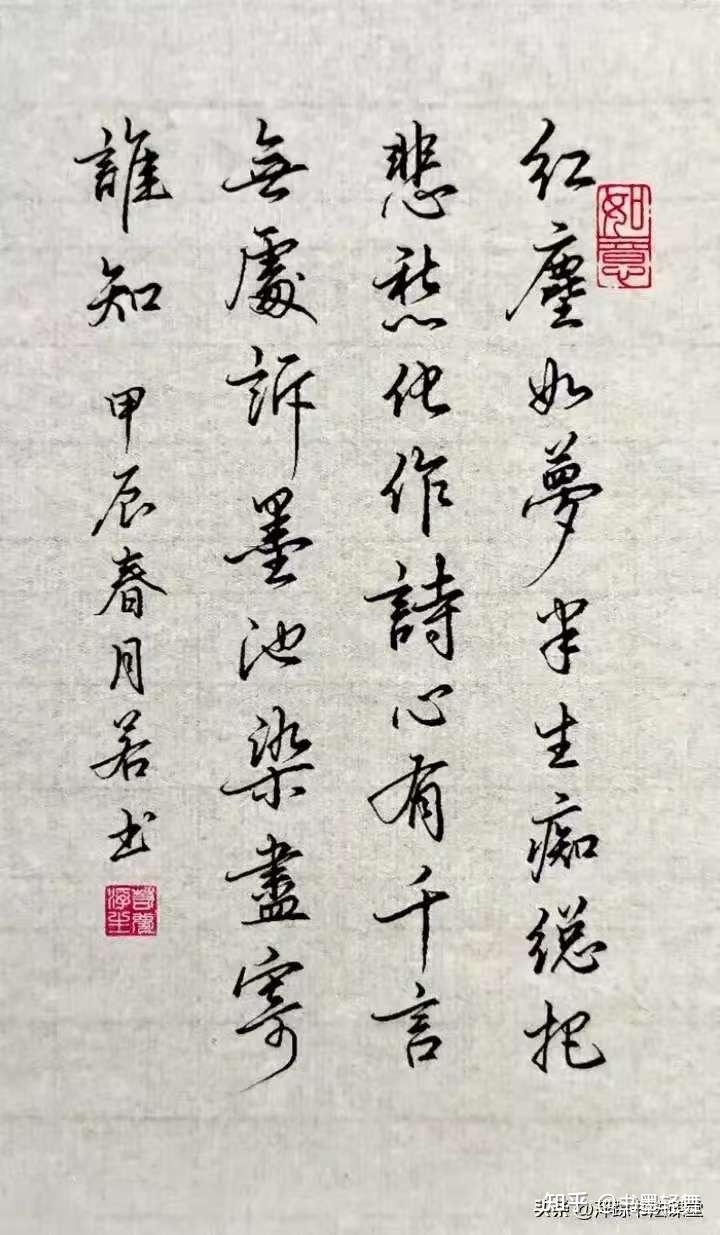 紅塵如夢半生痴總把
悲愁化作詩心有千言
無處訴墨池染盡寄
誰知 甲辰春月若书
如意
知乎 @书墨轻舞